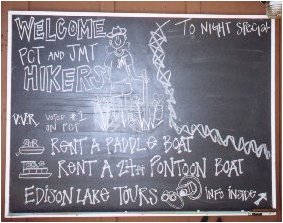 WELCOME
PCT AND JMT
HIKERS
TO NIGHT SPECIAL
JMT
V.V.R. VOTED #1
ON PCT
RENT A PADDLE BOAT
RENT A 24FT PONTOON BOAT
EDISON LAKE TOURS
INFO INSIDE